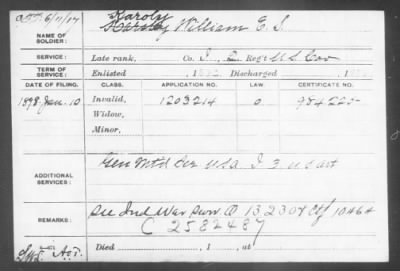 6/11/04 Karoly
NAME OF SOLDIER: William E. S.
SERVICE: Late rank, Co. I, 2 Reg't U.S. Cav
TERM OF SERVICE: Enlisted , 18 2, Discharged , 18
DATE OF FILING. CLASS. APPLICATION NO. LAW. CERTIFICATE NO.
1898 Jan. 10 Invalid, 1203214 0 984225
Widow,
Minor,
ADDITIONAL SERVICES: Gen Mtd Ser USA I 3 U S art
REMARKS: See Ind War Surv 13 23 04 Ctf 10464
C 2582487
Died , 1 , at